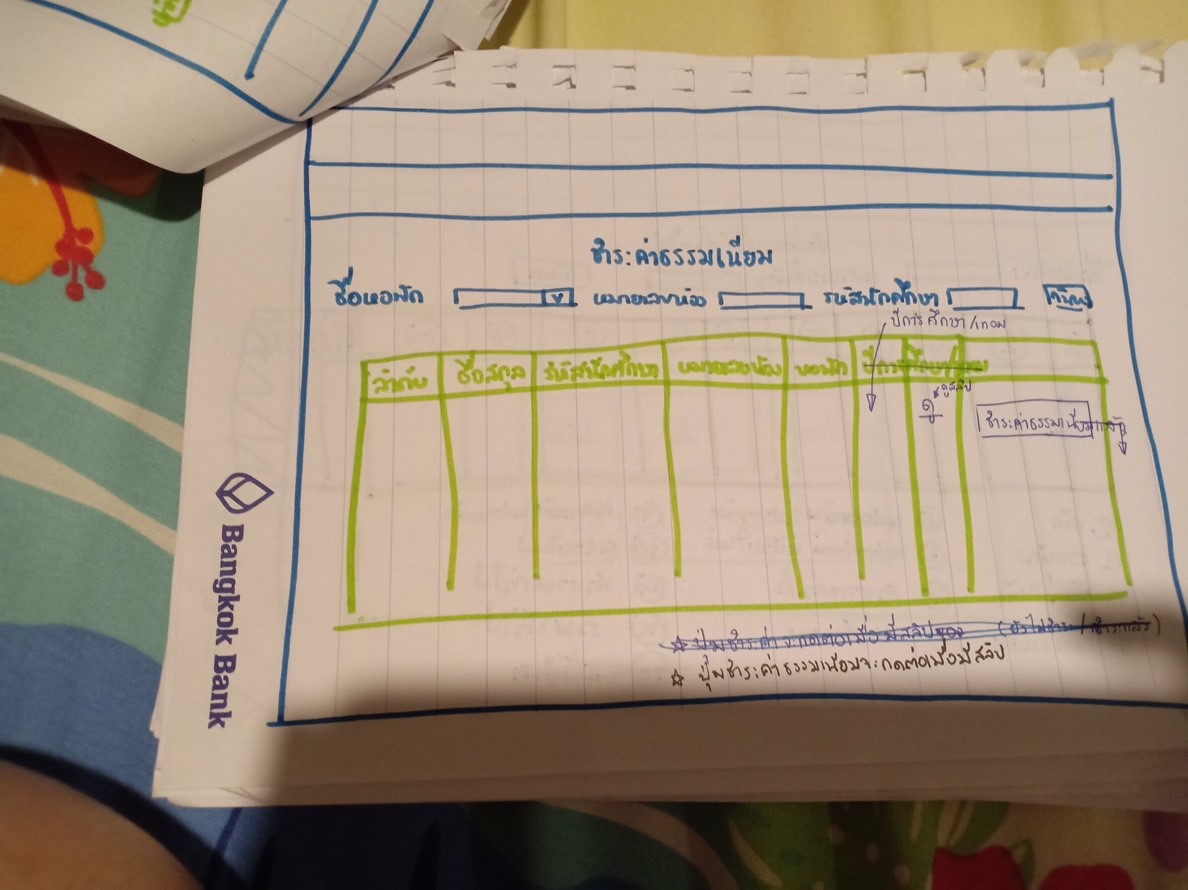 ชำระค่าธรรมเนียม
ชื่อหอพัก v หมายเลขห้อง รหัสนักศึกษา ค้นหา
ปีการศึกษา/เทอม
ลำดับ ชื่อสกุล รหัสนักศึกษา หมายเลขห้อง หอพัก ปีการศึกษา/เทอม
ดูสลิป
ดู
ชำระค่าธรรมเนียมแล้ว
☆ ปุ่มชำระค่า จะกดต่อเมื่อมีสลิป (ยังไม่ชำระ / ชำระแล้ว)
☆ ปุ่มชำระค่าธรรมเนียมจะกดต่อเมื่อมีสลิป
Bangkok Bank